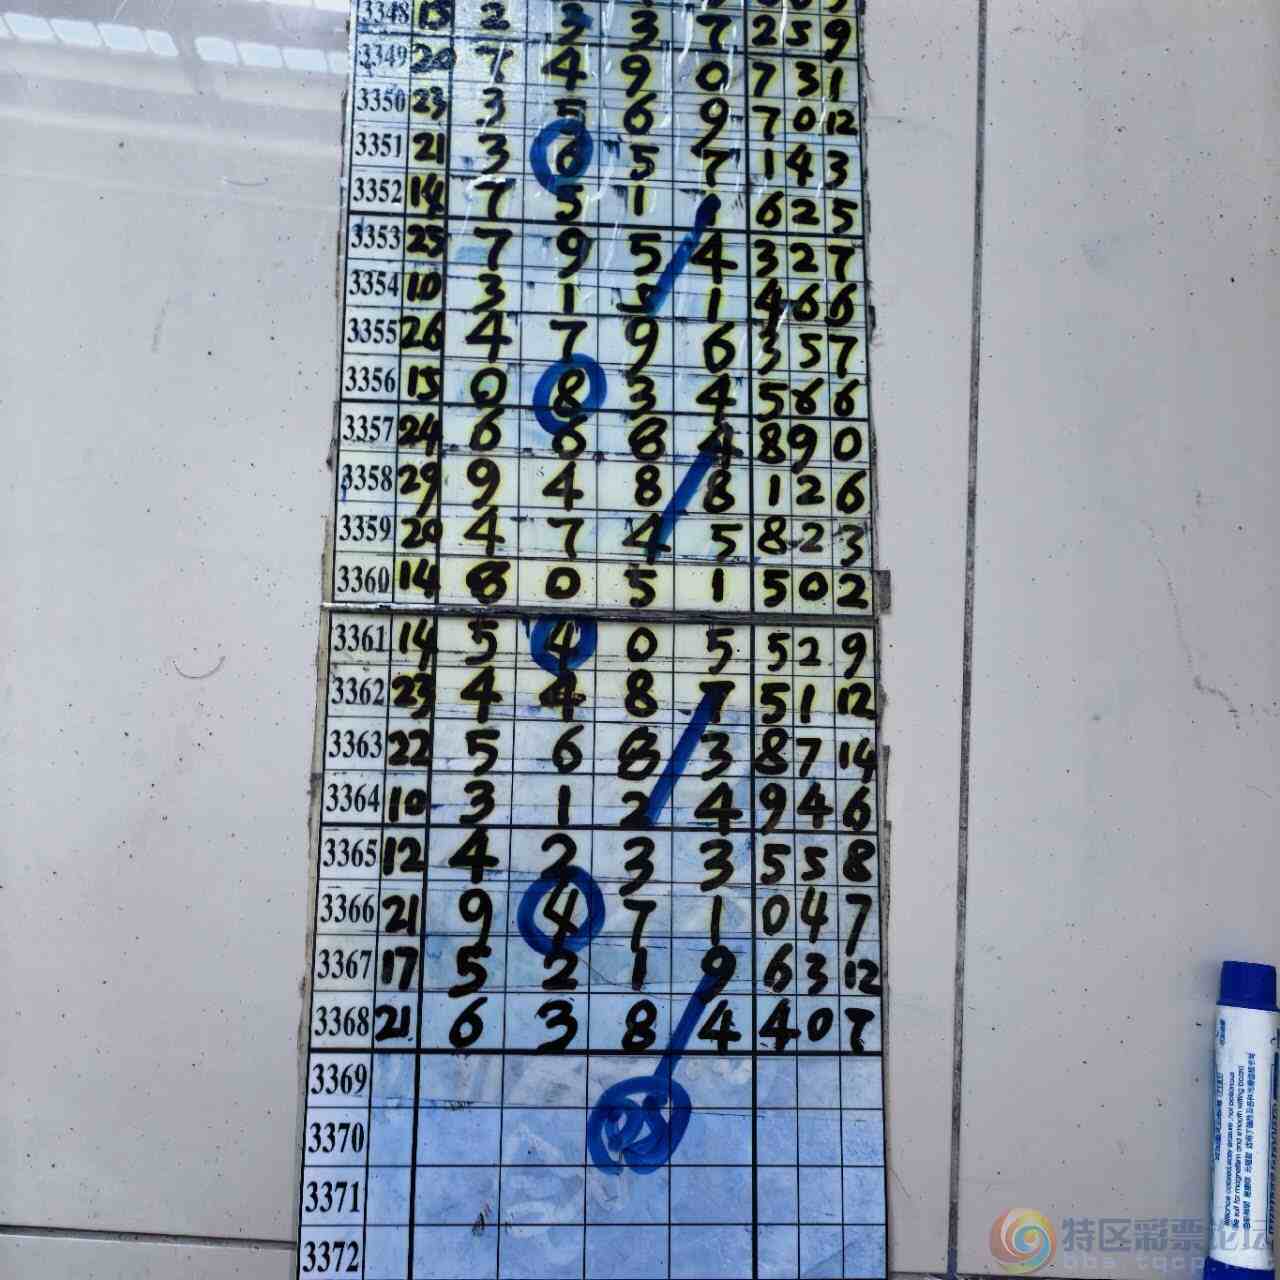 3348 15 2 3 3 7 2 5 9
3349 20 7 4 9 0 7 3 1
3350 23 3 5 6 9 7 0 12
3351 21 3 6 5 7 1 4 3
3352 14 7 5 1 1 6 2 5
3353 25 7 9 5 4 3 2 7
3354 10 3 1 5 1 4 6 6
3355 26 4 7 9 6 3 5 7
3356 15 0 8 3 4 5 8 6
3357 24 6 6 8 4 8 9 0
3358 29 9 4 8 8 1 2 6
3359 20 4 7 4 5 8 2 3
3360 14 8 0 5 1 5 0 2
3361 14 5 4 0 5 5 2 9
3362 23 4 4 8 7 5 1 12
3363 22 5 6 8 3 8 7 14
3364 10 3 1 2 4 9 4 6
3365 12 4 2 3 3 5 5 8
3366 21 9 4 7 1 0 4 7
3367 17 5 2 1 9 6 3 12
3368 21 6 3 8 4 4 0 7
3369
3370
3371
3372
特区彩票论坛